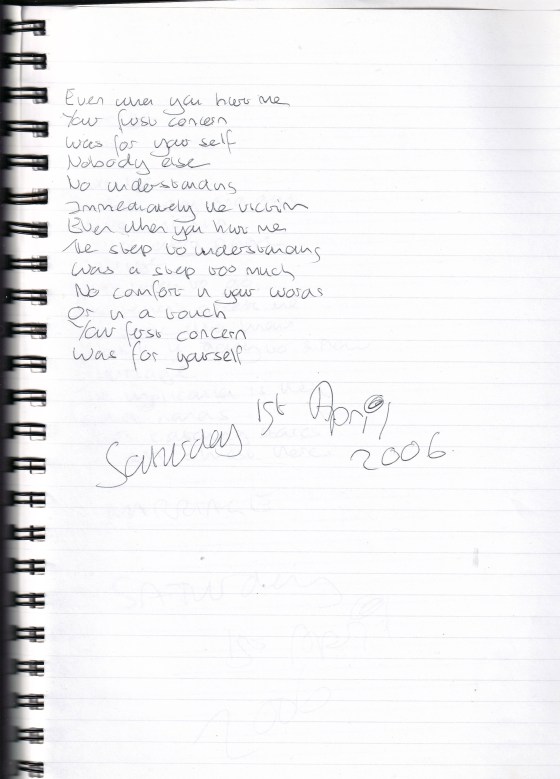 Even when you hurt me
Your first concern
Was for your self
Nobody else
No understanding
Immediately the victim
Even when you hurt me
The step to understanding
Was a step too much
No comfort in your words
Or in a touch
Your first concern
Was for yourself
Saturday 1st April
2006.
MARRIAGE
SATURDAY
1st April
2006